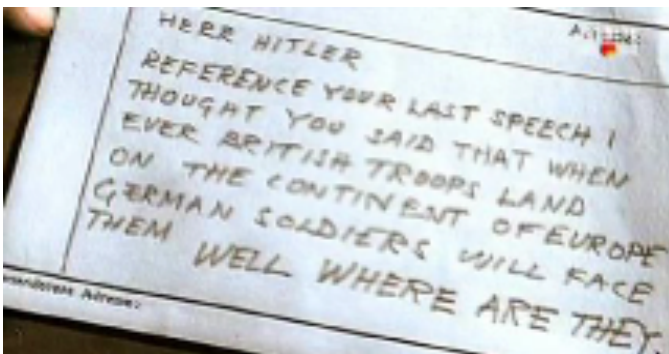 HERR HITLER
REFERENCE YOUR LAST SPEECH I
THOUGHT YOU SAID THAT WHEN
EVER BRITISH TROOPS LAND
ON THE CONTINENT OF EUROPE
GERMAN SOLDIERS WILL FACE
THEM WELL WHERE ARE THEY.